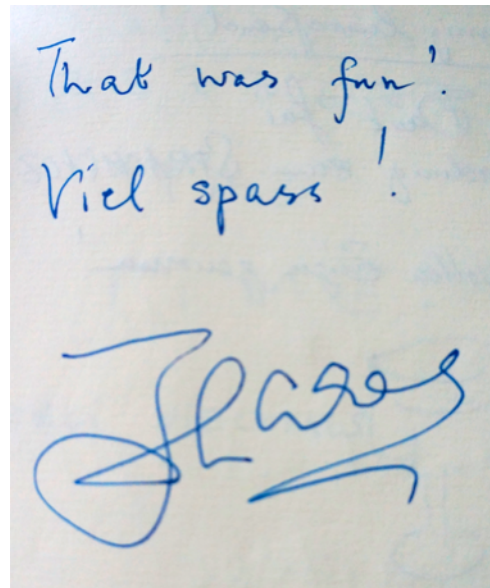 That was fun!
Viel spass!